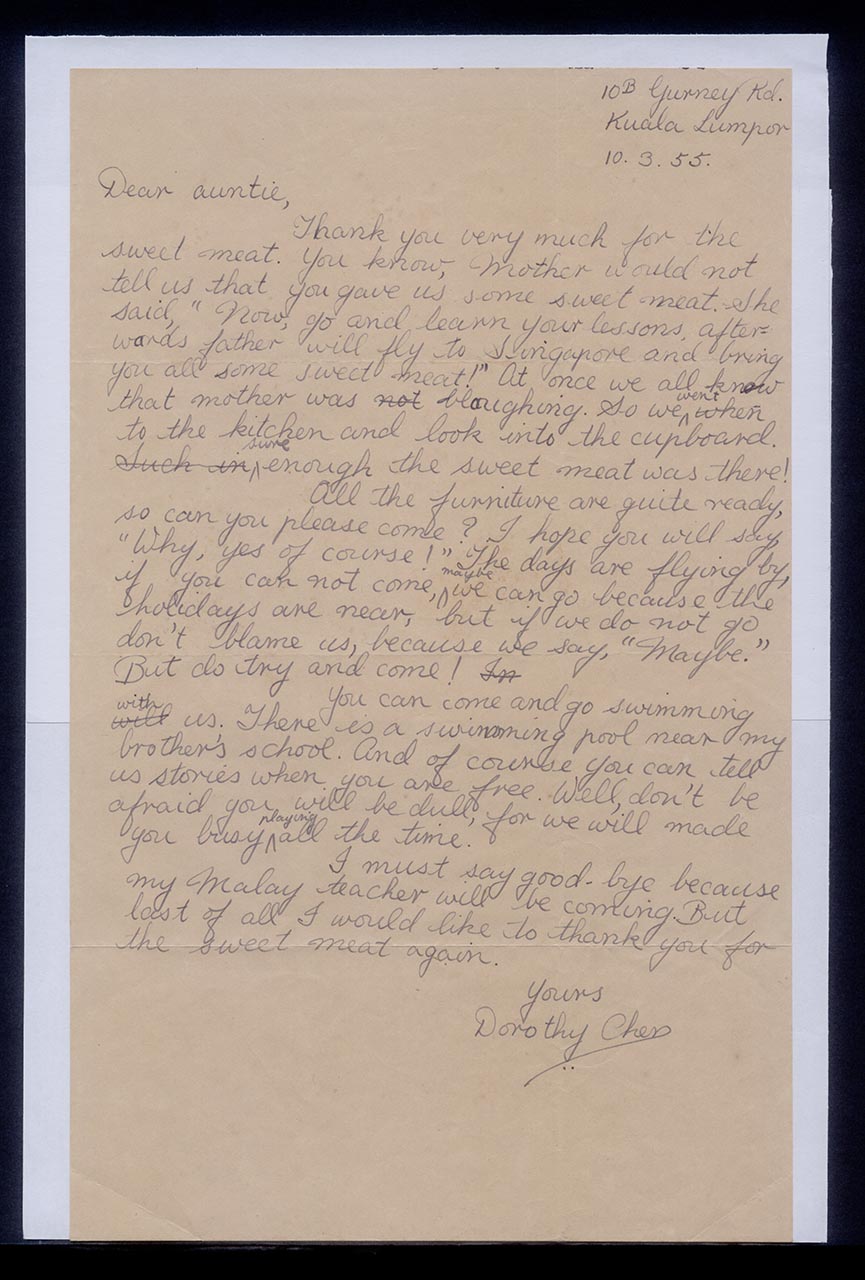 10B Gurney Rd.
Kuala Lumpor
10. 3. 55.
Dear auntie,
Thank you very much for the
sweet meat. You know, Mother would not
tell us that you gave us some sweet meat. She
said, "Now, go and learn your lessons, after=
wards father will fly to Singapore and bring
you all some sweet meat!" At once we all know
that mother was not blaughing. So we went when
to the kitchen and look into the cupboard.
Such in sure enough the sweet meat was there!
All the furniture are quite ready,
so can you please come? I hope you will say,
"Why, yes of course!" The days are flying by,
if you can not come, maybe we can go because the
holidays are near, but if we do not go
don't blame us, because we say, "Maybe."
But do try and come! In
You can come and go swimming
with will us. There is a swimming pool near my
brother's school. And of course you can tell
us stories when you are free. Well, don't be
afraid you will be dull, for we will made
you busy playing all the time.
I must say good-bye because
my Malay teacher will be coming. But
last of all I would like to thank you for
the sweet meat again.
Yours
Dorothy Chen